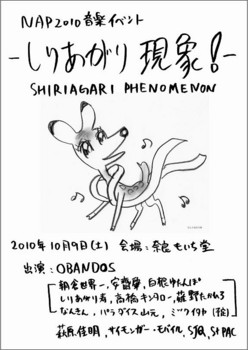 NAP2010音楽イベント
-しりあがり現象!-
SHIRIAGARI PHENOMENON
2010年10月9日(土) 会場:奈良もいち堂
出演:OBANDOS
朝倉世界一、安齋肇、白根ゆたんぽ
しりあがり寿、高橋キンタロー、薙野たかひろ
なんきん、パラダイス山元、ミック・イタヤ(絵)
萩原佳明、サイモンガー・モバイル、SjQ、St PAC